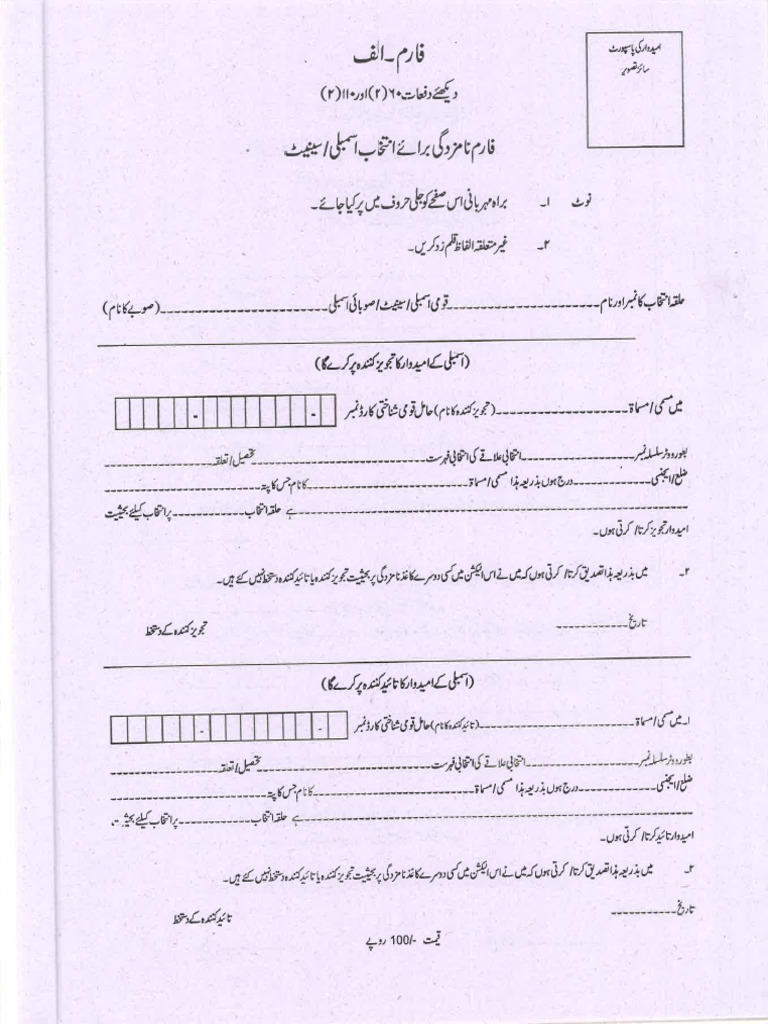 امیدوار کی پاسپورٹ
سائز تصویر
فارم۔ الف
دیکھئے دفعات ۶۰(۲) اور ۱۱۰(۲)
فارم نامزدگی برائے انتخاب اسمبلی/سینیٹ
نوٹ ۱۔ براہ مہربانی اس صفحے کو جلی حروف میں پر کیا جائے۔
۲۔ غیر متعلقہ الفاظ قلم زد کریں۔
حلقہ انتخاب کا نمبر اور نام ---------- قومی اسمبلی/سینیٹ/صوبائی اسمبلی ---------- (صوبے کا نام)
(اسمبلی کے امیدوار کا تجویز کنندہ پر کرے گا)
میں مسمی/مسماۃ ---------- (تجویز کنندہ کا نام) حامل قومی شناختی کارڈ نمبر - -
بطور ووٹر سلسلہ نمبر ---------- انتخابی علاقے کی انتخابی فہرست ---------- تحصیل/تعلقہ ----------
ضلع/ایجنسی ---------- درج ہوں بذریعہ ہذا مسمی/مسماۃ ---------- کا نام جس کا پتہ ----------
---------- ہے حلقہ انتخاب ---------- پر انتخاب کیلئے بحیثیت
امیدوار تجویز کرتا/کرتی ہوں۔
۲۔ میں بذریعہ ہذا تصدیق کرتا/کرتی ہوں کہ میں نے اس الیکشن میں کسی دوسرے کاغذ نامزدگی پر بحیثیت تجویز کنندہ یا تائید کنندہ دستخط نہیں کئے ہیں۔
تاریخ ---------- تجویز کنندہ کے دستخط
(اسمبلی کے امیدوار کا تائید کنندہ پر کرے گا)
۱۔ میں مسمی/مسماۃ ---------- (تائید کنندہ کا نام) حامل قومی شناختی کارڈ نمبر - -
بطور ووٹر سلسلہ نمبر ---------- انتخابی علاقے کی انتخابی فہرست ---------- تحصیل/تعلقہ ----------
ضلع/ایجنسی ---------- درج ہوں بذریعہ ہذا مسمی/مسماۃ ---------- کا نام جس کا پتہ ----------
---------- ہے حلقہ انتخاب ---------- پر انتخاب کیلئے بحیثیت
امیدوار تائید کرتا/کرتی ہوں۔
۲۔ میں بذریعہ ہذا تصدیق کرتا/کرتی ہوں کہ میں نے اس الیکشن میں کسی دوسرے کاغذ نامزدگی پر بحیثیت تجویز کنندہ یا تائید کنندہ دستخط نہیں کئے ہیں۔
تاریخ ---------- تائید کنندہ کے دستخط
قیمت -/100 روپے